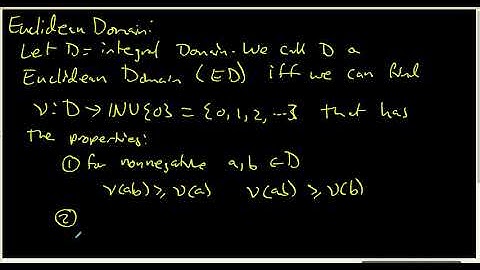 Euclidean Domain:
Let D = integral Domain. We call D a
Euclidean Domain (ED) iff we can find
ν: D → ℕ∪{0} = {0, 1, 2, ...} that has
the properties:
① for nonnegative a, b ∈ D
ν(ab) ≥ ν(a) ν(ab) ≥ ν(b)
②